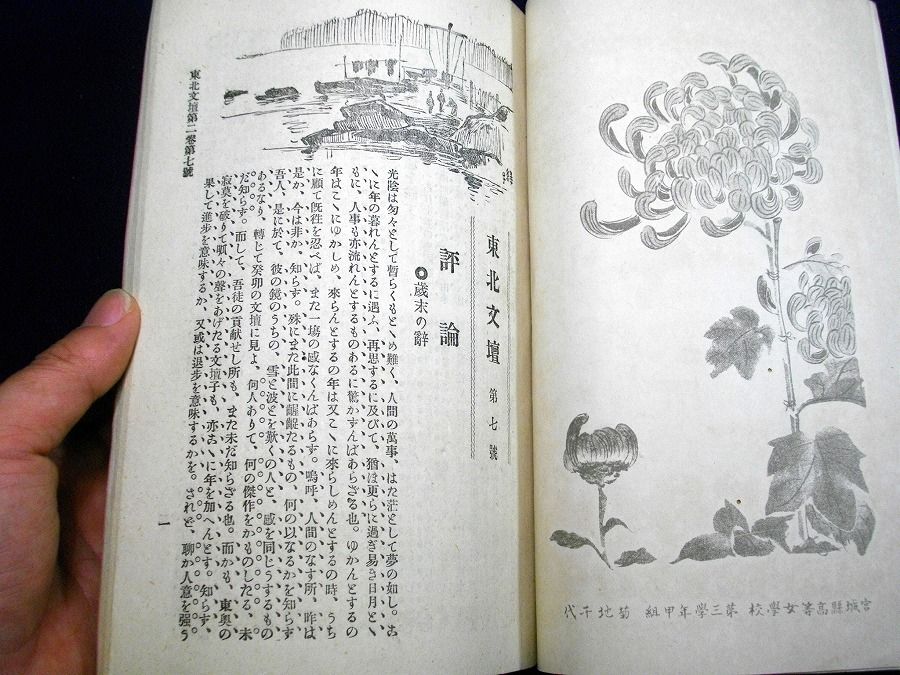 宮城縣高等女學校 第三學年甲組 菊地千代
東北文壇 第七號
評論
◎歲末の辭
光陰は匆々として暫らくもとゞめ難く、人間の萬事、はた茫として夢の如し。こ
ゝに年の暮れんとするに遇ふ、再思するに及びて、猶ほ更らに過ぎ易き日月とゝ
もに、人事も亦流れんとするものあるに驚かずんばあらざる也。ゆかんとするの
年はこゝにゆかしめ、來らんとするの年は又こゝに來らしめんとするの時、うち
に顧て旣往を忍べば、また一塲の感なくんばあらず。嗚呼、人間のなす所、昨は
是か、今は非か、知らず。殊にまた此間に齷齪たるもの、何の以なるかを知らず
吾人、是に於て、彼の鏡のうちの、雪と波とを歎くの人と、感を同じうするもの
あるなり、轉じて癸卯の文壇に見よ、何人ありて、何の傑作をかものしたる、未
だ知らず。而して、吾徒の貢献せし所も、また未だ知らざる也。而かも、東奥の
寂寞を破りて呱々の聲をあげたる文壇子も、亦こゝに年を加へんとす。知らず、
果して進步を意味するか、又或は退步を意味するかを。されど、聊か人意を强う
東北文壇第二卷第七號
一